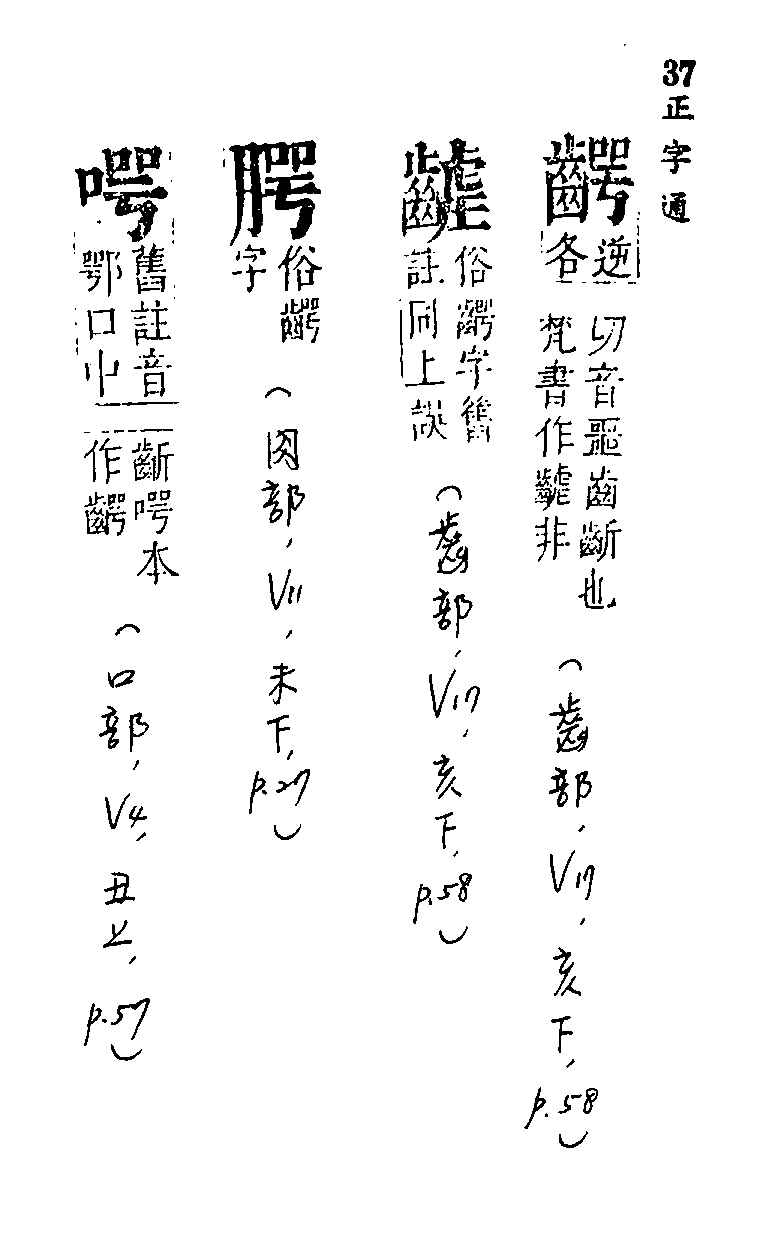 37正字通
齶
逆各
切音噩齒齗也
梵書作非
(齒部, V17, 亥下, p.58)
俗齶字舊
註同上誤
(齒部, V17, 亥下, p.58)
腭
俗齶
字
(肉部, V11, 未下, p.27)
㗁
舊註音
鄂口中
齗㗁本
作齶
(口部, V4, 丑上, p.57)